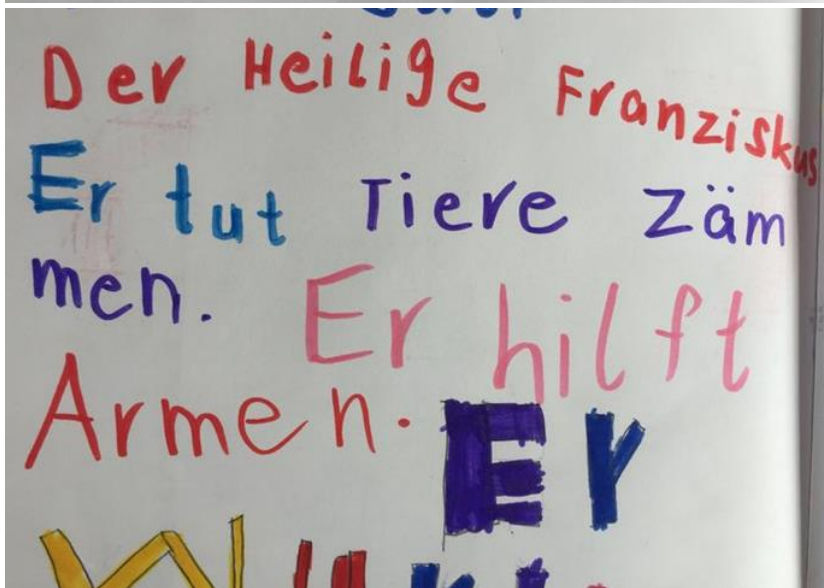 Der Heilige Franziskus
Er tut Tiere Zäm
men. Er hilft
Armen. Er